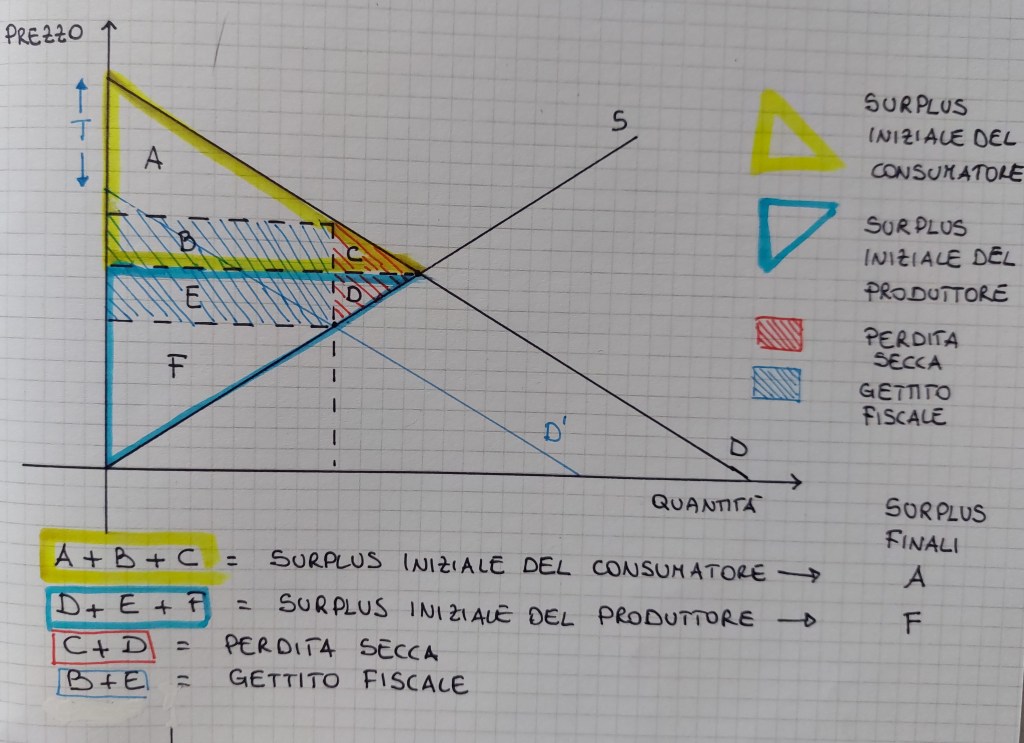 PREZZO
T
A
B
C
D
E
F
S
D'
D
QUANTITÀ
SURPLUS
INIZIALE DEL
CONSUMATORE
SURPLUS
INIZIALE DEL
PRODUTTORE
PERDITA
SECCA
GETTITO
FISCALE
SURPLUS
FINALI
A + B + C = SURPLUS INIZIALE DEL CONSUMATORE → A
D + E + F = SURPLUS INIZIALE DEL PRODUTTORE → F
C + D = PERDITA SECCA
B + E = GETTITO FISCALE